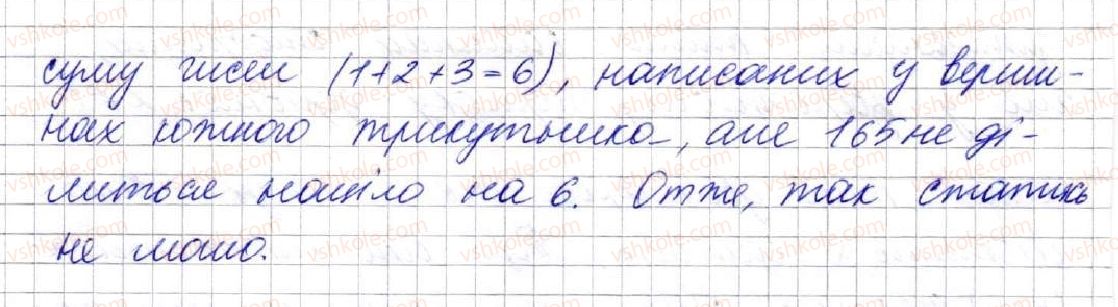 суму чисел (1+2+3=6), написаних у верши-
нах кожного трикутника, але 165 не ді-
литься націло на 6. Отже, так статись
не мало.